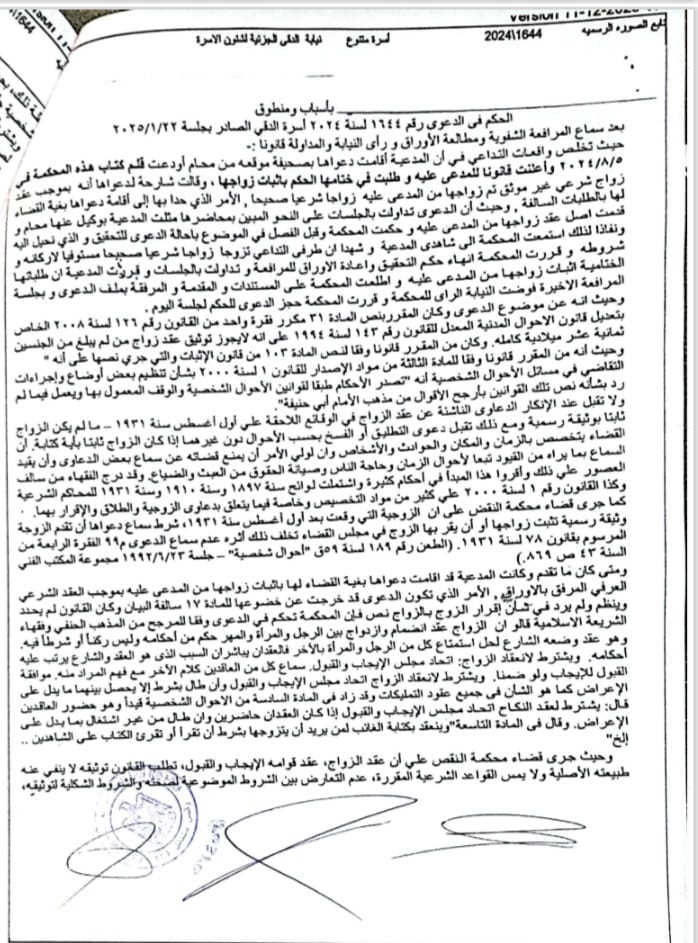 Version 11-12-202
تابع الصوره الرسميه
2024\1644
أسرة متنوع
نيابة الدقي الجزئية لشئون الاسرة
1644\
بأسباب ومنطوق
الحكم فى الدعوى رقم ١٦٤٤ لسنة ٢٠٢٤ أسرة الدقي الصادر بجلسة ٢٠٢٥/١/٢٢
بعد سماع المرافعة الشفوية ومطالعة الأوراق و رأى النيابة والمداولة قانونا :-
حيث تخلص واقعات التداعي في أن المدعية أقامت دعواها بصحيفة موقعه من محام أودعت قلم كتاب هذه المحكمة في
٢٠٢٤/٨/٥ وأعلنت قانونا للمدعى عليه و طلبت في ختامها الحكم باثبات زواجها , وقالت شارحة لدعواها أنه بموجب عقد
زواج شرعي غير موثق تم زواجها من المدعى عليه زواجا شرعيا صحيحا , الأمر الذي حدا بها إلى أقامة دعواها بغية القضاء
لها بالطلبات السالفة , وحيث أن الدعوى تداولت بالجلسات على النحو المبين بمحاضرها مثلت المدعية بوكيل عنها محام و
قدمت اصل عقد زواجها من المدعى عليه و حكمت المحكمة وقبل الفصل في الموضوع باحالة الدعوى للتحقيق و الذي نحيل اليه
ونفاذا لذلك استمعت المحكمة الى شاهدى المدعية و شهدا ان طرفى التداعي تزوجا زواجا شرعيا صحيحا مستوفيا لاركانه و
شروطه و قررت المحكمة انهاء حكم التحقيق واعادة الاوراق للمرافعة و تداولت بالجلسات و قررت المدعية ان طلباتها
الختامية اثبات زواجها من المدعى عليه و اطلعت المحكمة على المستندات و المقدمة و المرفقة بملف الدعوى و بجلسة
المرافعة الاخيرة فوضت النيابة الراى للمحكمة و قررت المحكمة حجز الدعوى للحكم لجلسة اليوم .
وحيث انه عن موضوع الدعوى وكان المقرر بنص المادة ٣١ مكرر فقرة واحد من القانون رقم ١٢٦ لسنة ٢٠٠٨ الخاص
بتعديل قانون الاحوال المدنية المعدل للقانون رقم ١٤٣ لسنة ١٩٩٤ على انه لايجوز توثيق عقد زواج من لم يبلغ من الجنسين
ثمانية عشر ميلادية كامله. وكان من المقرر قانونا وفقا لنص المادة ١٠٣ من قانون الإثبات والتي جري نصها على أنه "
وحيث أنه من المقرر قانونا وفقا للمادة الثالثة من مواد الإصدار للقانون ١ لسنة ٢٠٠٠ بشأن تنظيم بعض أوضاع وإجراءات
التقاضي في مسائل الأحوال الشخصية أنه "تصدر الأحكام طبقا لقوانين الأحوال الشخصية والوقف المعمول بها ويعمل فيما لم
رد بشأنه نص تلك القوانين بأرجح الأقوال من مذهب الأمام أبي حنيفة"
ولا تقبل عند الإنكار الدعاوى الناشئة عن عقد الزواج في الوقائع اللاحقة علي أول أغسطس سنة ١٩٣١ – ما لم يكن الزواج
ثابتا بوثيقة رسمية ومع ذلك تقبل دعوى التطليق أو الفسخ بحسب الأحوال دون غيرهما إذا كان الزواج ثابتا بأية كتابة. أن
القضاء يتخصص بالزمان والمكان والحوادث والأشخاص وان لولي الأمر أن يمنع قضاته عن سماع بعض الدعاوى وأن يقيد
السماع بما يراه من القيود تبعا لأحوال الزمان وحاجة الناس وصيانة الحقوق من العبث والضياع, وقد درج الفقهاء من سالف
العصور علي ذلك وأقروا هذا المبدأ في أحكام كثيرة واشتملت لوائح سنة ١٨٩٧ وسنة ١٩١٠ وسنة ١٩٣١ للمحاكم الشرعية
وكذا القانون رقم ١ لسنة ٢٠٠٠ علي كثير من مواد التخصيص وخاصة فيما يتعلق بدعاوى الزوجية والطلاق والإقرار بهما.
كما جرى قضاء محكمة النقض على ان الزوجية التي وقعت بعد أول أغسطس سنة ١٩٣١، شرط سماع دعواها أن تقدم الزوجة
وثيقة رسمية تثبت زواجها أو أن يقر بها الزوج في مجلس القضاء تخلف ذلك أثره عدم سماع الدعوى م٩٩ الفقرة الرابعة من
المرسوم بقانون ٧٨ لسنة ١٩٣١. (الطعن رقم ١٨٩ لسنة ٥٩ق "أحوال شخصية" – جلسة ١٩٩٢/٦/٢٣ مجموعة المكتب الفني
السنة ٤٣ ص ٨٦٩.)
ومتى كان ما تقدم وكانت المدعية قد اقامت دعواها بغية القضاء لها باثبات زواجها من المدعى عليه بموجب العقد الشرعي
العرفي المرفق بالأوراق , الأمر الذي تكون الدعوى قد خرجت عن خضوعها للمادة ١٧ سالفة البيان وكان القانون لم يحدد
وينظم ولم يرد في شأن إقرار الزوج بالزواج نص فإن المحكمة تحكم في الدعوى وفقا للمرجح من المذهب الحنفي وفقهاء
الشريعة الاسلامية قالو ان الزواج عقد انضمام وازدواج بين الرجل والمرأة والمهر حكم من أحكامه وليس ركناً أو شرطاً فيه.
وهو عقد وضعه الشارع لحل استمتاع كل من الرجل والمرأة بالأخر فالعقدان يباشران السبب الذى هو العقد والشارع يرتب عليه
أحكامه. ويشترط لانعقاد الزواج: اتحاد مجلس الإيجاب والقبول. سماع كل من العاقدين كلام الأخر مع فهم المراد منه. موافقة
القبول للإيجاب ولو ضمنا. ويشترط لانعقاد الزواج اتحاد مجلس الإيجاب والقبول وأن طال بشرط إلا يحصل بينهما ما يدل على
الإعراض كما هو الشأن فى جميع عقود التمليكات وقد زاد فى المادة السادسة من الأحوال الشخصية قيداً وهو حضور العاقدين
قال: يشترط لعقد النكاح اتحاد مجلس الإيجاب والقبول إذا كان العقدان حاضرين وان طال من غير اشتغال بما يدل على
الإعراض. وقال فى المادة التاسعة"وينعقد بكتابة الغائب لمن يريد أن يتزوجها بشرط أن تقرأ أو تقرئ الكتاب على الشاهدين ..
إلخ"
وحيث جرى قضاء محكمة النقض علي أن عقد الزواج، عقد قوامه الإيجاب والقبول، تطلب القانون توثيقه لا ينفي عنه
طبيعته الأصلية ولا يمس القواعد الشرعية المقررة، عدم التعارض بين الشروط الموضوعية لصحته والشروط الشكلية لتوثيقه,